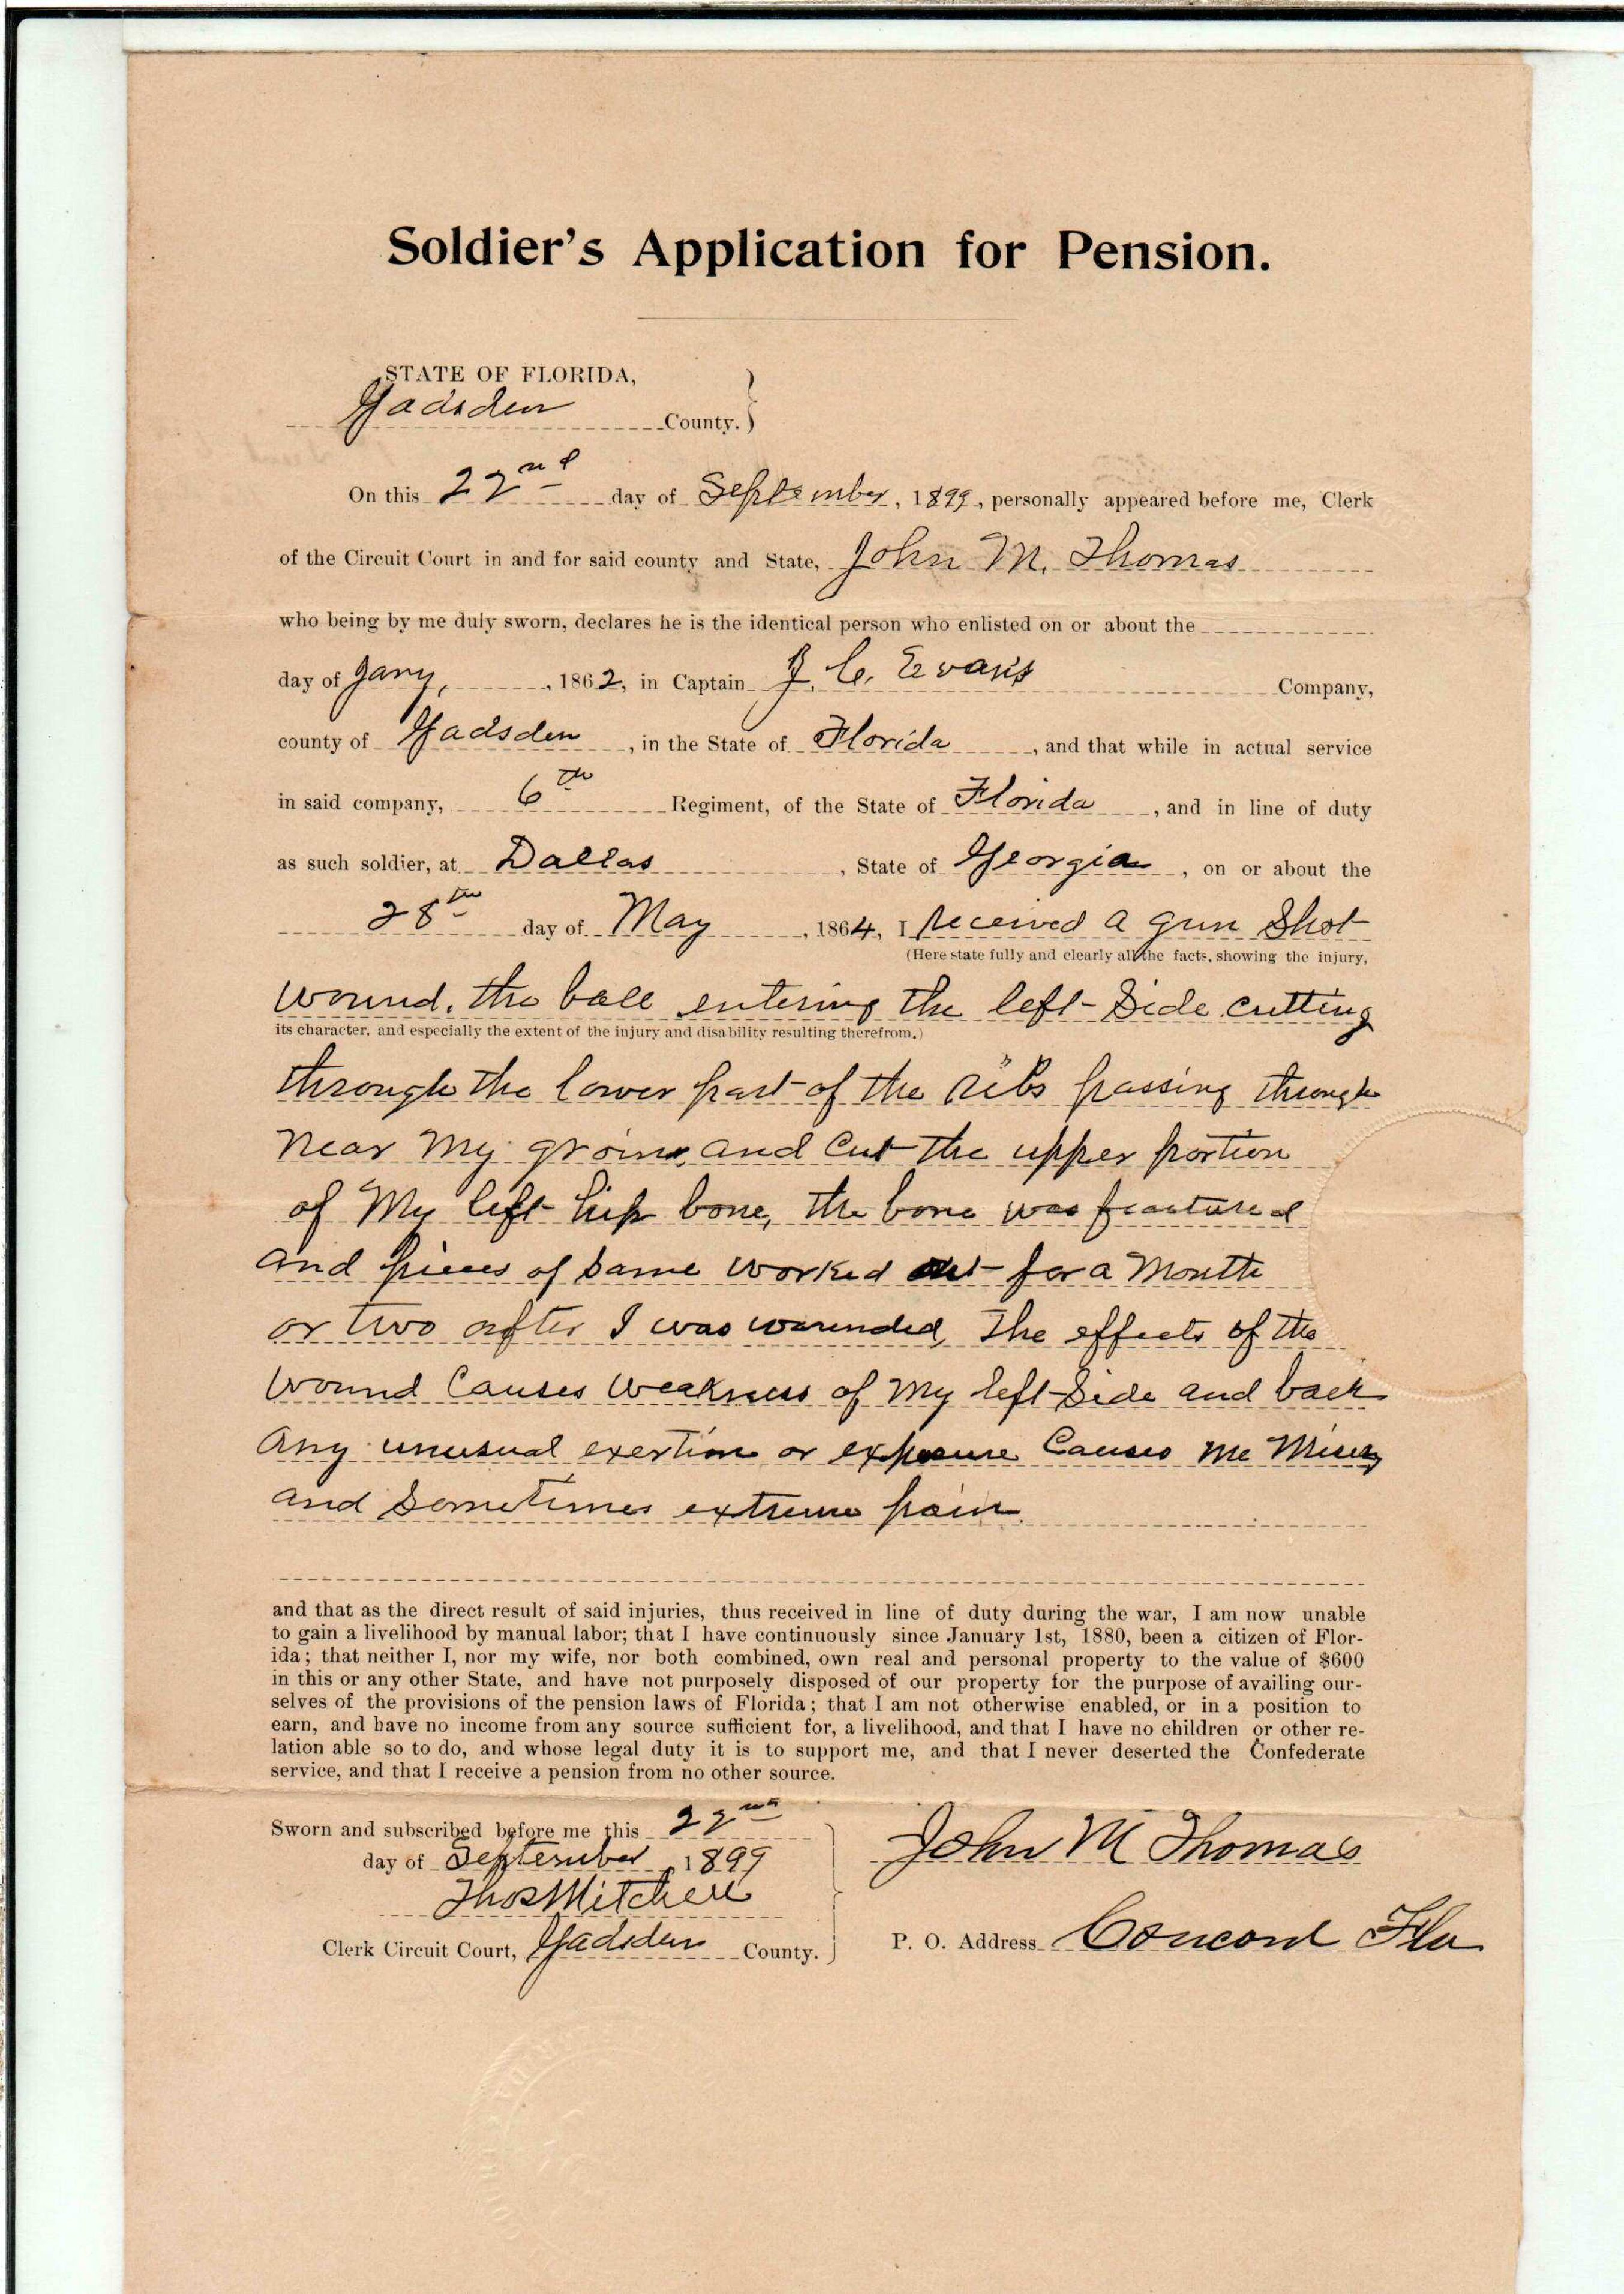 Soldier's Application for Pension.
STATE OF FLORIDA,
Gadsden County.
On this 22nd day of September, 1899, personally appeared before me, Clerk
of the Circuit Court in and for said county and State, John M. Thomas
who being by me duly sworn, declares he is the identical person who enlisted on or about the
day of Jany, , 1862, in Captain J. C. Evans Company,
county of Gadsden , in the State of Florida , and that while in actual service
in said company, 6th Regiment, of the State of Florida , and in line of duty
as such soldier, at Dallas , State of Georgia , on or about the
28th day of May , 1864, I received a gun shot
(Here state fully and clearly all the facts, showing the injury,
wound, the ball entering the left side cutting
its character, and especially the extent of the injury and disability resulting therefrom.)
through the lower part of the ribs passing through
near my groin, and cut the upper portion
of my left hip bone, the bone was fractured
and pieces of same worked out for a month
or two after I was wounded, The effects of the
wound causes weakness of my left side and back
any unusual exertion or exposure causes me misery
and sometimes extreme pain.
and that as the direct result of said injuries, thus received in line of duty during the war, I am now unable
to gain a livelihood by manual labor; that I have continuously since January 1st, 1880, been a citizen of Flor-
ida; that neither I, nor my wife, nor both combined, own real and personal property to the value of $600
in this or any other State, and have not purposely disposed of our property for the purpose of availing our-
selves of the provisions of the pension laws of Florida; that I am not otherwise enabled, or in a position to
earn, and have no income from any source sufficient for, a livelihood, and that I have no children or other re-
lation able so to do, and whose legal duty it is to support me, and that I never deserted the Confederate
service, and that I receive a pension from no other source.
Sworn and subscribed before me this 22nd
day of September, 1899
Thos Mitchell
Clerk Circuit Court, Gadsden County.
John M Thomas
P. O. Address Concord Fla